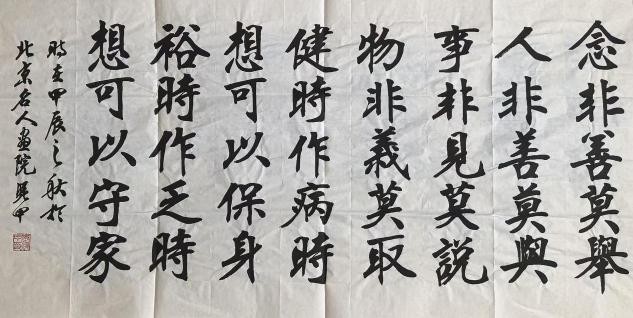 念非善莫舉
人非善莫與
事非見莫説
物非義莫取
健時作病時
想可以保身
裕時作乏時
想可以守家
時在甲辰之秋於
北京名人畫院